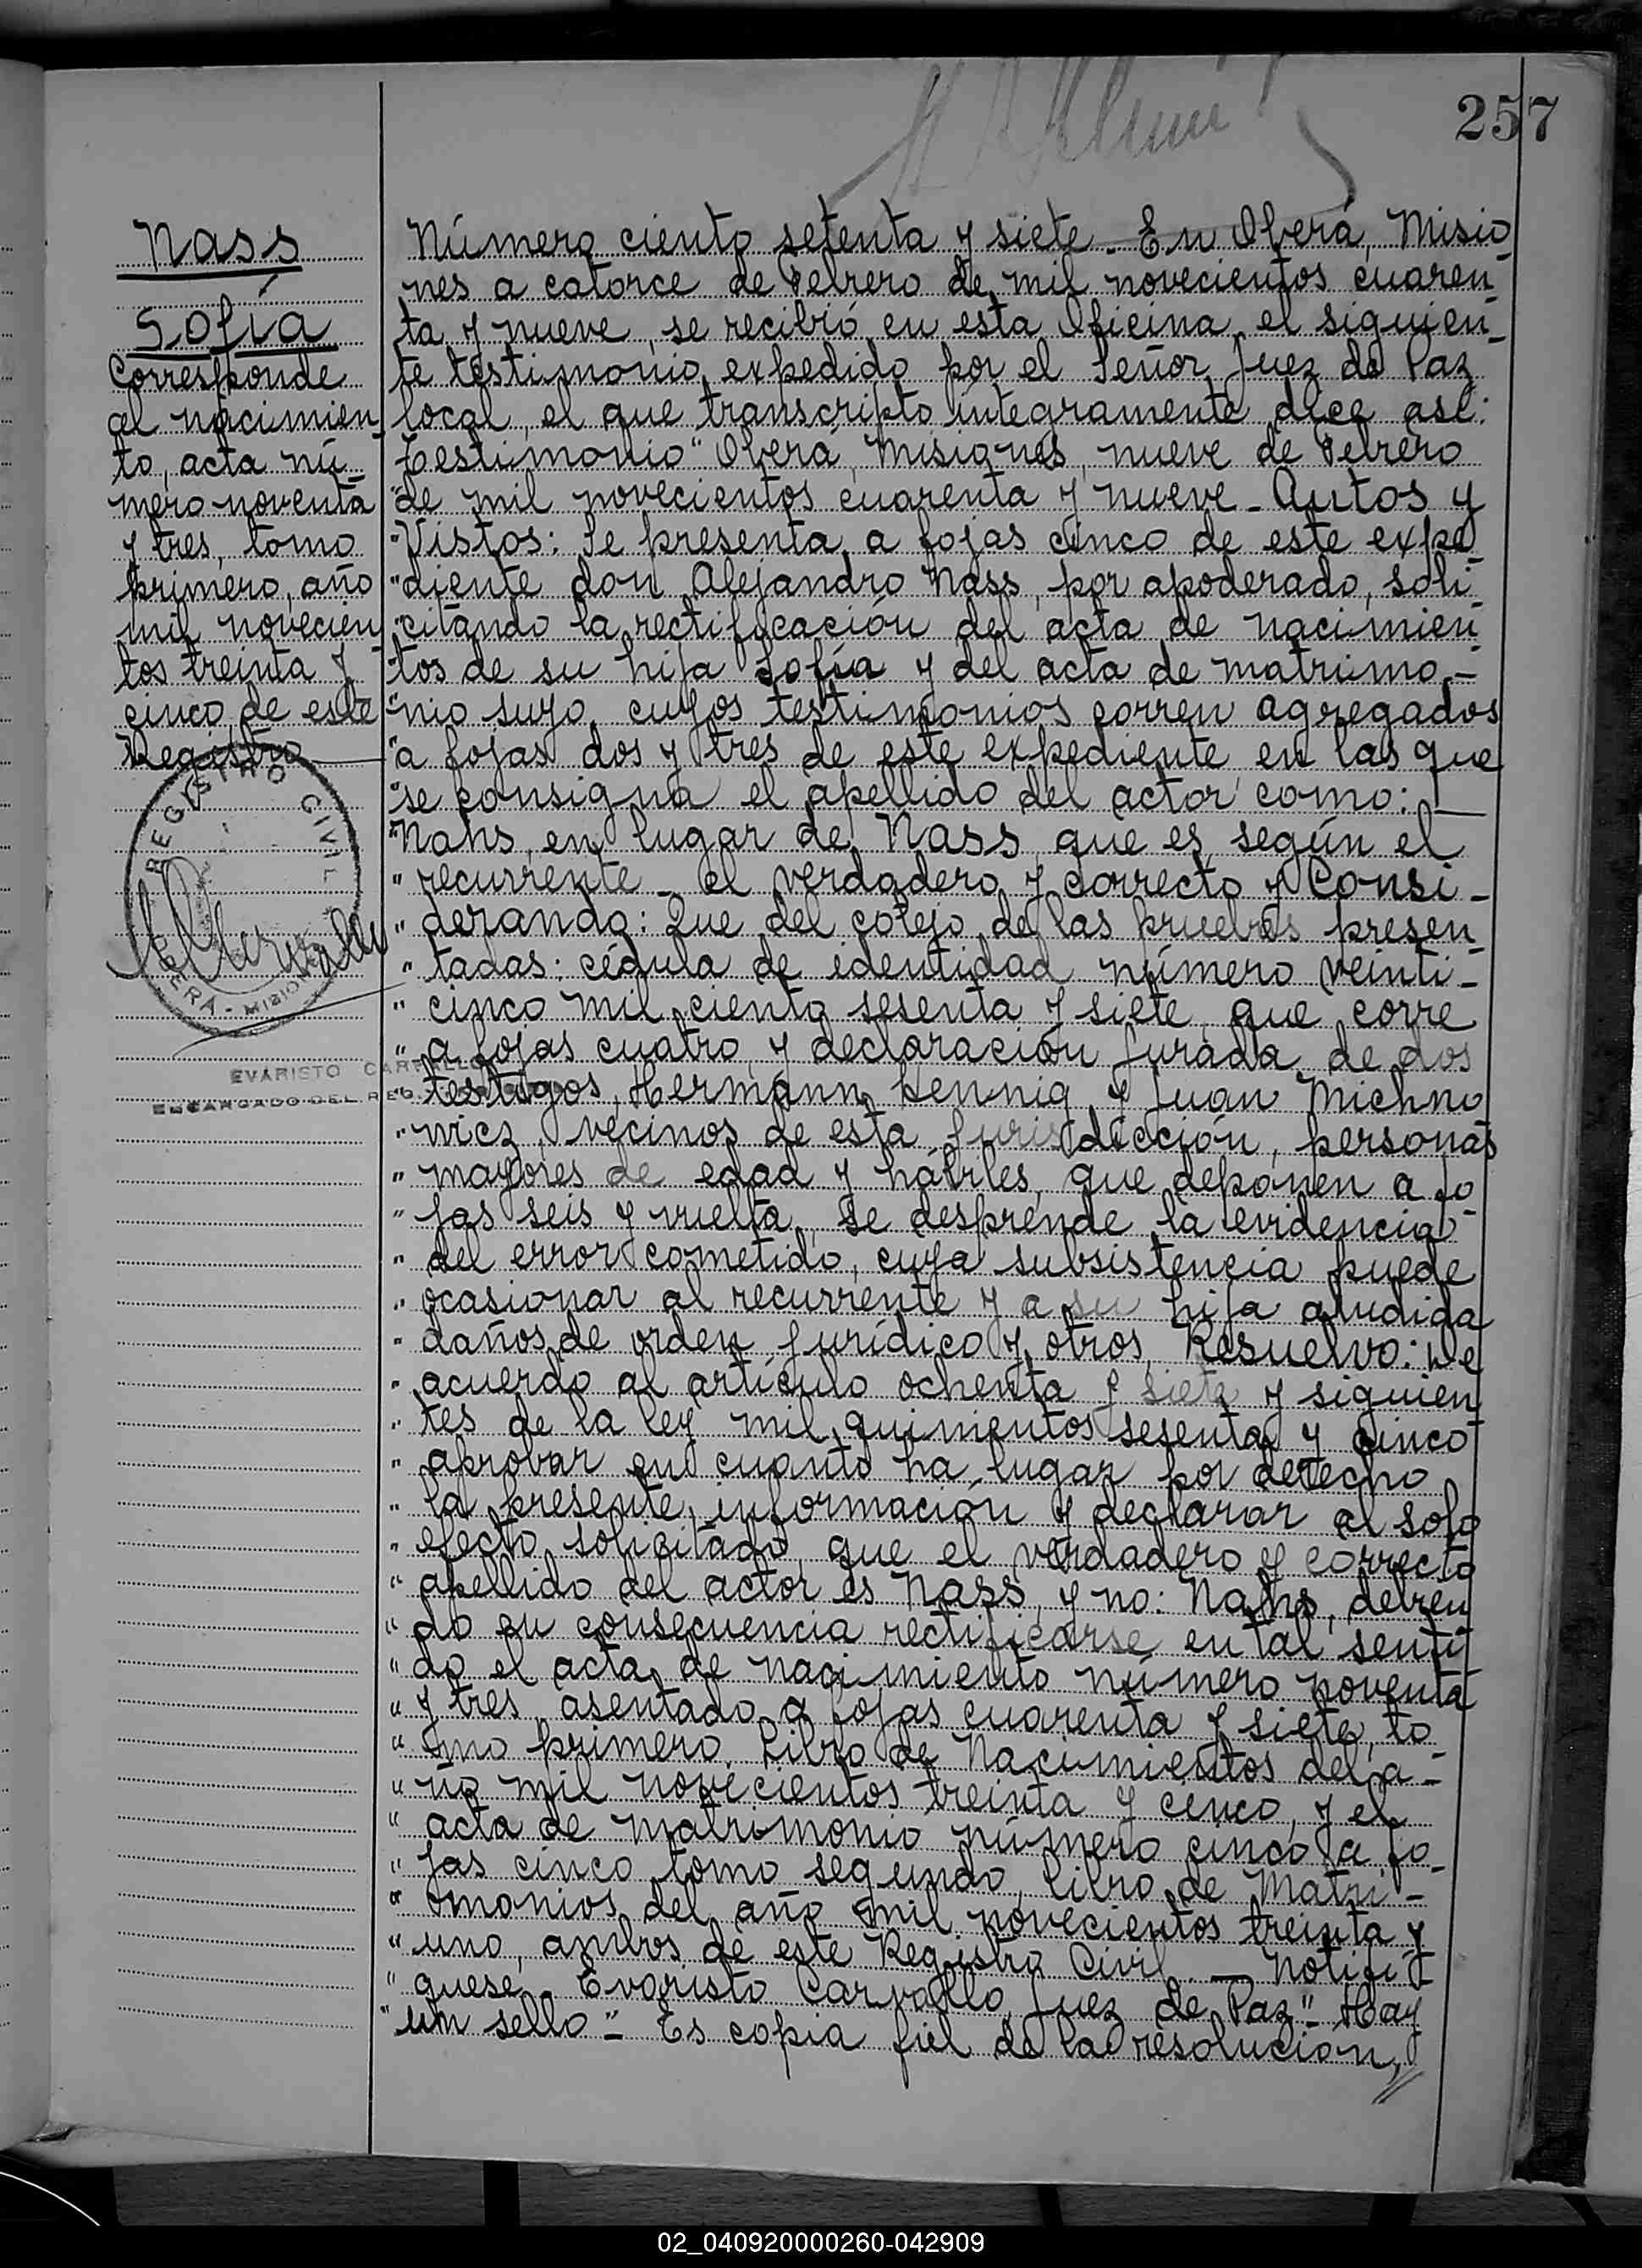 257
Nass
Sofía
Corresponde
al nacimien
to, acta nú
mero noventa
y tres, tomo
primero, año
mil novecien
tos treinta y
cinco de este
Registro
REGISTRO CIVIL
OBERÁ - MISIONES
EVARISTO CARVALLO
ENCARGADO DEL REG.
Número ciento setenta y siete - En Oberá, Misio
nes a catorce de Febrero de mil novecientos cuaren
ta y nueve, se recibió en esta Oficina el siguien
te testimonio, expedido por el Señor Juez de Paz
local, el que transcripto íntegramente dice así:
Testimonio "Oberá, Misiones, nueve de Febrero
"de mil novecientos cuarenta y nueve - Autos y
"Vistos: Se presenta a fojas cinco de este expe
"diente don Alejandro Nass, por apoderado, soli
"citando la rectificación del acta de nacimien
"tos de su hija Sofía y del acta de matrimo-
"nio suyo, cuyos testimonios corren agregados
"a fojas dos y tres de este expediente en las que
"se consigna el apellido del actor como:
"Nahs, en lugar de Nass, que es, según el
" recurrente - el verdadero y correcto y Consi-
" derando: Que del cotejo de las pruebas presen
" tadas: cédula de identidad número veinti-
" cinco mil ciento sesenta y siete, que corre
" a fojas cuatro y declaración jurada de dos
" testigos, Hermánn Hennig y Juan Michno
" wicz, vecinos de esta jurisdicción, personas
" mayores de edad y hábiles, que deponen a fo
" jas seis y vuelta, se desprende la evidencia
" del error cometido, cuya subsistencia puede
" ocasionar al recurrente y a su hija aludida
" daños de orden jurídico y otros, Resuelvo: De
" acuerdo al artículo ochenta y siete y siguien
" tes de la ley mil quinientos sesenta y cinco
" aprobar en cuanto ha lugar por derecho
" la presente información y declarar al solo
" efecto solicitado, que el verdadero y correcto
" apellido del actor es Nass, y no: Nahs, debien
" do en consecuencia rectificarse en tal senti
" do el acta de nacimiento número noventa
" y tres, asentado a fojas cuarenta y siete, to
" mo primero, Libro de Nacimientos del a-
" ño mil novecientos treinta y cinco, y el
" acta de matrimonio número cinco a fo-
" jas cinco, tomo segundo, Libro de Matri-
" monios del año mil novecientos treinta y
" uno, ambos de este Registro Civil - Notifí
" quese - Evaristo Carvallo, Juez de Paz" - Hay
" un sello" - Es copia fiel de la resolución,
02_040920000260-042909